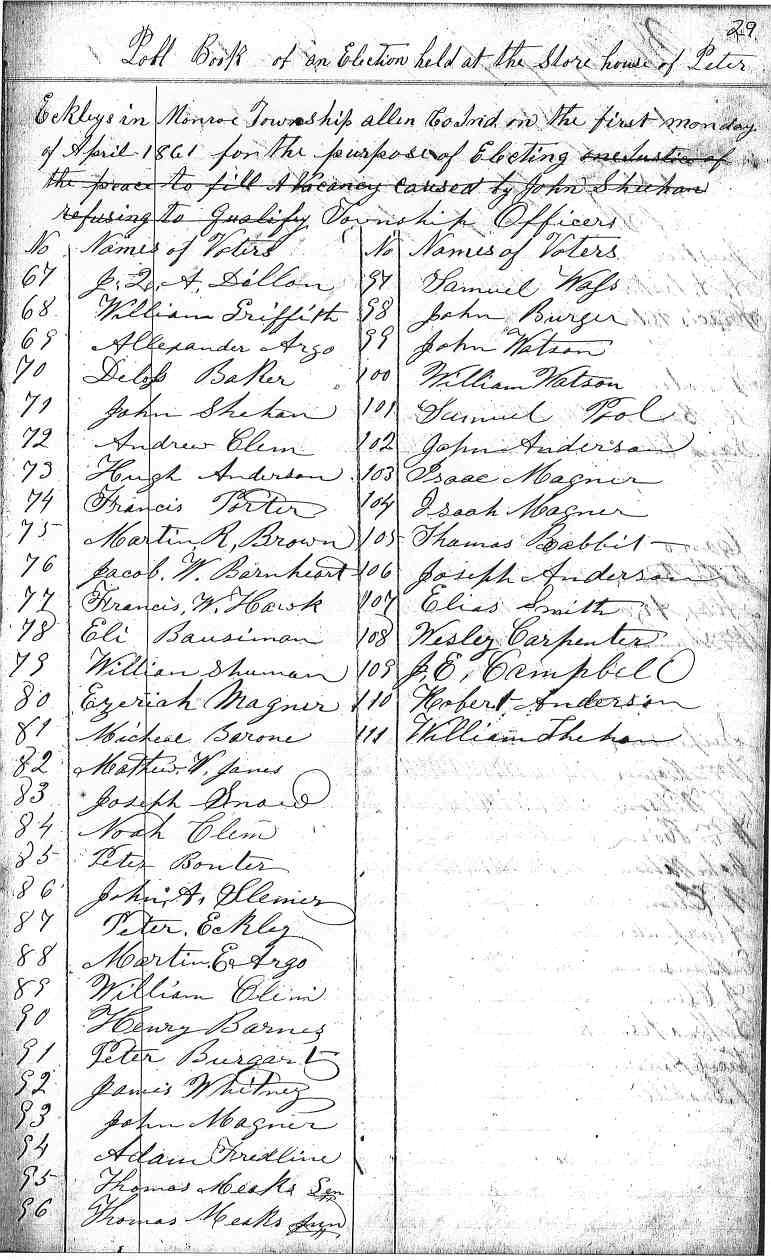 29
Poll Book of an Election held at the Store house of Peter
Eckleys in Monroe Township allen Co Ind. on the first monday
of April 1861 for the purpose of Electing one Justice of
the peace to fill A Vacancy caused by John Shehan
refusing to Qualify Township Officers
No Names of Voters
67 J. Q. A. Dillon
68 William Griffith
69 Allexander Argo
70 Deloss Baker
71 John Shehan
72 Andrew Clem
73 Hugh Anderson
74 Francis Porter
75 Martin R, Brown
76 Jacob. W. Barnheart
77 Francis, W. Hawk
78 Eli Bausiman
79 William Shuman
80 Ezeriah Magner
81 Micheal Barone
82 Mathew. W. Janes
83 Joseph
84 Noah Clem
85 Peter Bonter
86 John, A,
87 Peter. Eckley
88 Martin. E. Argo
89 William Clem
90 Henry Barnes
91 Peter
92 James Whitney
93 John Magner
94 Adam Fredline
95 Thomas Meaks Sen
96 Thomas Meaks Jun
No Names of Voters
97 Samuel Wass
98 John Burger
99 John Watson
100 William Watson
101 Samuel Pool
102 John Anderson
103 Isaac Magner
104 Isaah Magner
105 Thomas Babbit
106 Joseph Anderson
107 Elias Smith
108 Wesley Carpenter
109 J. E. Campbell
110 Robert Anderson
111 William Shehan